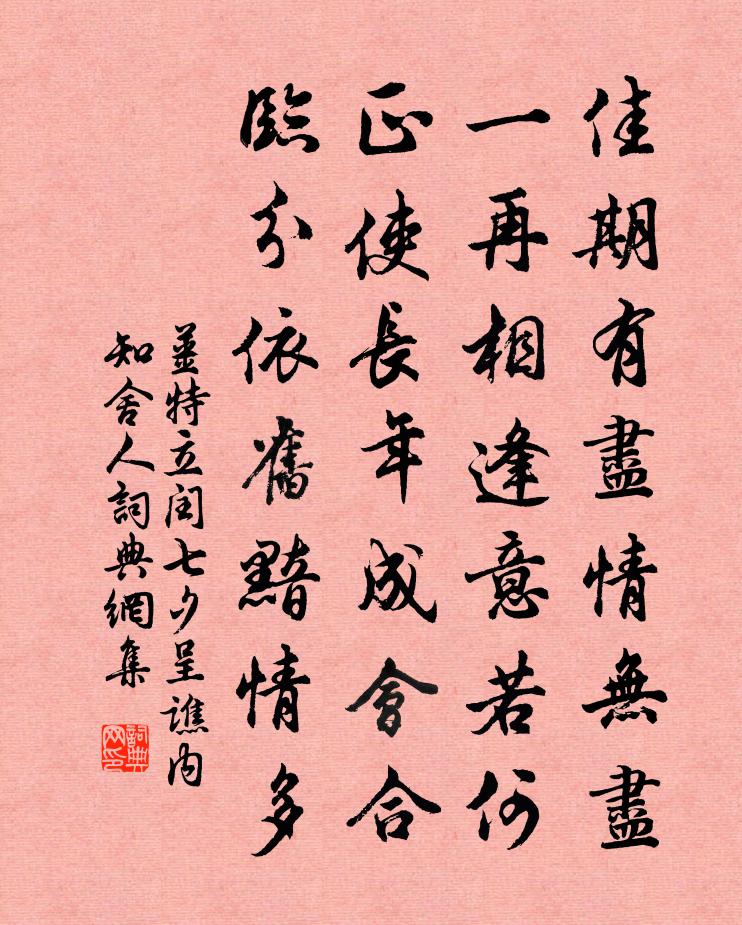 佳期有盡情無盡
一再相逢意若何
正使長年成會合
臨分依舊黯情多
薑特立閏七夕呈譙內
知舍人詞典網集
詞典网印